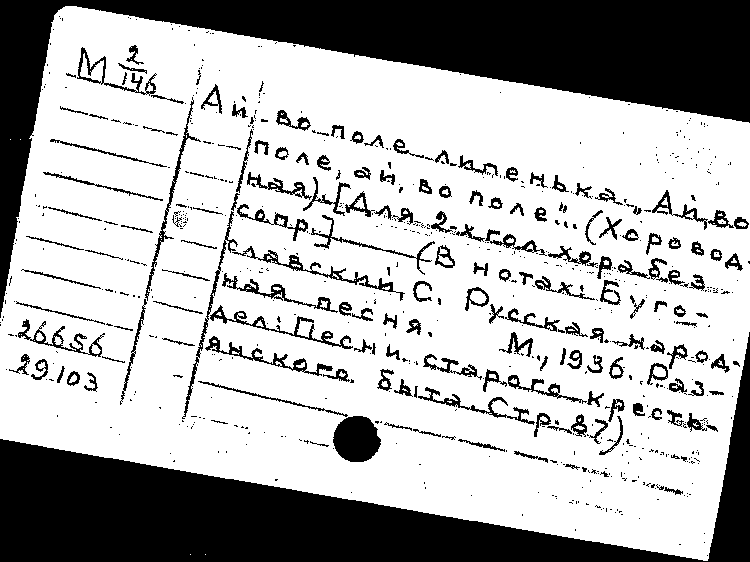 М 2/146
Ай, во поле липенька. „Ай, во
поле, ай, во поле"... (Хоровод-
ная). [Для 2-х гол. хора без
сопр.] — (В нотах: Буго-
славский, С. Русская народ-
ная песня. М., 1936. Раз-
дел: Песни старого кресть-
янского быта. Стр. 87).
26656
29103